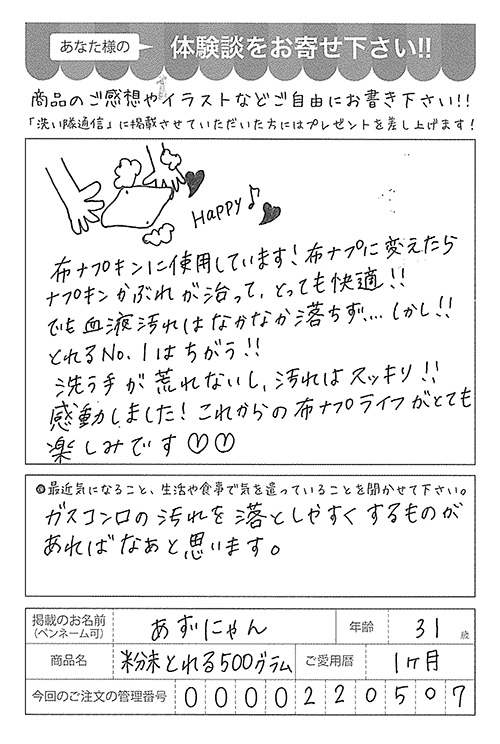 あなた様の 体験談をお寄せ下さい!!
商品のご感想やイラストなどご自由にお書き下さい!!
「洗い隊通信」に掲載させていただいた方にはプレゼントを差し上げます!
Happy♪
布ナプキンに使用しています!布ナプに変えたら
ナプキンかぶれが治って、とっても快適!!
でも血液汚れはなかなか落ちず…、しかし!!
とれるNo.1はちがう!!
洗う手が荒れないし、汚れはスッキリ!!
感動しました!これからの布ナプライフがとても
楽しみです♡♡
●最近気になること、生活や食事で気を遣っていることを聞かせて下さい。
ガスコンロの汚れを落としやすくするものが
あればなぁと思います。
掲載のお名前(ペンネーム可) あずにゃん 年齢 31歳
商品名 粉末とれる500グラム ご愛用暦 1ヶ月
今回のご注文の管理番号 0000220507